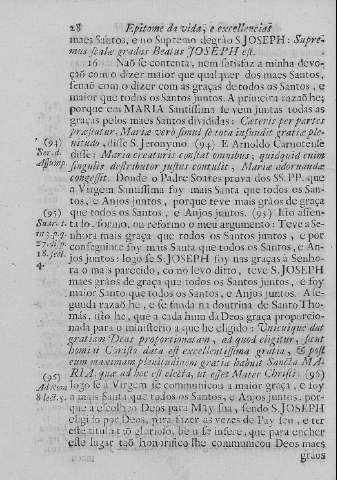 28 Epitome da vida, e excellencias
maes Santos, e no Supremo degráo S. JOSEPH: Supre-
mus scalæ gradus Beatus JOSEPH est.
16 Naõ se contenta, nem satisfaz a minha devo-
çaõ com o dizer maior que qualquer dos maes Santos,
senaõ com o dizer com as graças de todos os Santos, e
maior que todos os Santos juntos. A primeira razaõ he;
porque em MARIA Santissima se vem juntas todas as
graças pelos maes Santos divididas: Cæteris per partes
præstatur, Mariæ verò simul se tota infundit gratiæ ple-
(94) nitudo, disse S. Jeronymo. (94) E Arnoldo Carnotense
Ser. d. disse: Maria creaturis constat omnibus; quidquid enim
Assump. singulis distributor justus contulit; Mariæ adornandæ
congessit. Donde o Padre Soares prova dos SS. PP. que
a Virgem Santissima foy mais Santa que todos os San-
tos, e Anjos juntos, porque teve mais gráos de graça
(95) que todos os Santos, e Anjos juntos. (95) Isto assen-
Suar. t. tado, formo, ou reformo o meu argumento: Teve a Se-
nhora mais graça que todos os Santos juntos, e por
conseguinte foy mais Santa que todos os Santos, e An-
18. sect. jos juntos: logo se S. JOSEPH foy nas graças à Senho-
4. ra o mais parecido, co no levo ditto, teve S. JOSEPH
maes gráos de graça que todos os Santos juntos, e foy
maior Santo que todos os Santos, e Anjos juntos. A se-
gunda razaõ he, e se funda na doutrina de Santo Tho-
más, isto he, que a cada hum dá Deos graça proporcio-
nada para o ministerio a que he eligido: Unicuique dat
gratiam Deus proportionatam, ad quod eligitur, sicut
homini Christo data est excellentissima gratia, & post
eum maximam plenitudinem gratiæ habuit Sancta MA-
(95) RIA, quæ ad hoc est electa, ut esset Mater Christi. (96)
logo se á Virgem se communicou a maior graça, e foy
8 lect. 5. mais Santa que todos os Santos, e Anjos juntos, por-
que a escolheo Deos para Mãy sua, sendo S. JOSEPH
eligido por Deos, para fazer as vezes de Pay seu, e ter
este titulo taõ glorioso, bem se infere, que para encher
este lugar taõ honorifico lhe communicou Deos maes
gráos